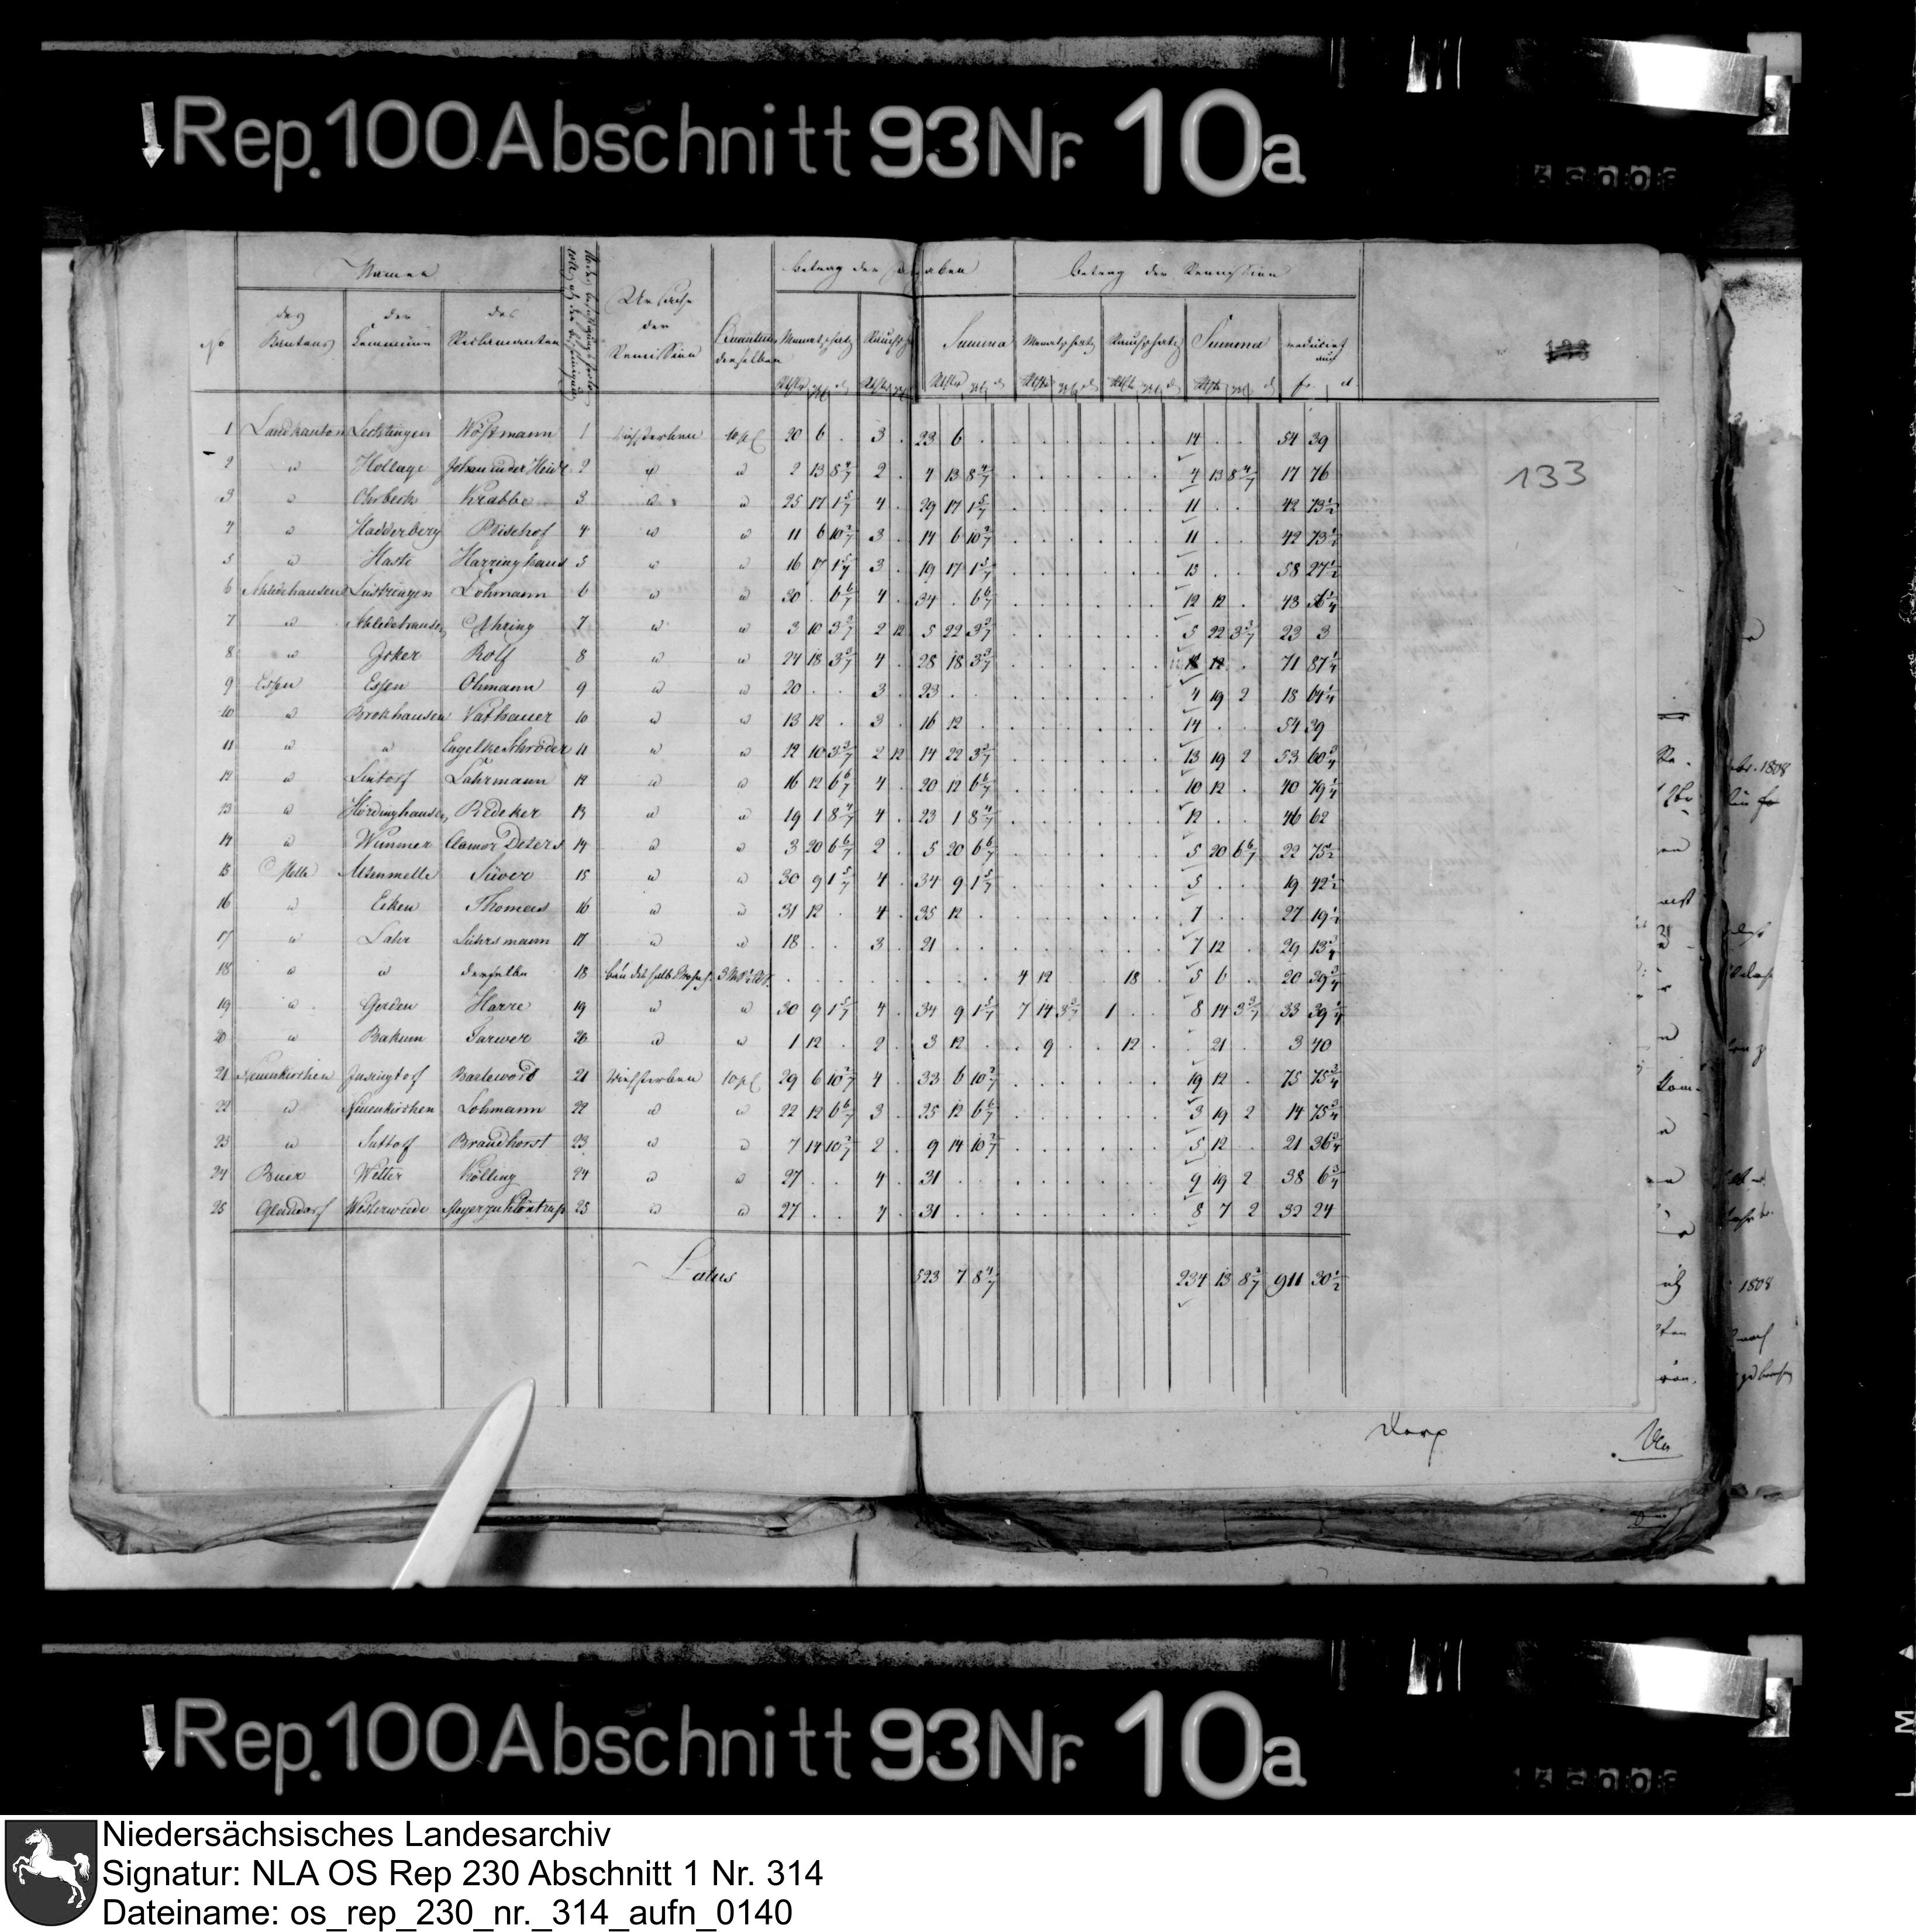 Rep. 100 Abschnitt 93 Nr. 10a
Namen
Betrag der Abgaben
Betrag der Remissionen
No
des Kantons
der Kommüne
des Reclamanten
Ursache der Remission
Quantum derselben
Monatschatz
Rauchsch
Summa
Monatschatz
Rauchschatz
Summa
reducirt auf
fr.
133
133
1 Landkanton Lechtingen Wöstmann 1 Viehsterben 20 6 . 3 . 23 6 . 14 . . 54 39
2 " Hollage Johan in der Heide 2 " " 2 13 8 4/7 2 . 4 13 8 4/7 4 13 8 4/7 17 76
3 " Ohrbeck Krabbe 3 " " 25 17 1 5/7 4 . 29 17 1 5/7 11 . . 42 73 1/2
4 " Hadderberg Bischof 4 " " 11 6 10 2/7 3 . 14 6 10 2/7 11 . . 42 73 1/2
5 " Haste Harringhaus 5 " " 16 17 1 5/7 3 . 19 17 1 5/7 15 . . 58 27 1/2
6 Schledehausen Lüstringen Lohmann 6 " " 30 . 6 6/7 4 . 34 . 6 6/7 12 12 . 48 56 1/4
7 " Schledehausen 7 " " 3 10 3 3/7 2 12 5 22 3 3/7 5 22 3 3/7 23 3
8 " Jeker Rolf 8 " " 24 18 3 3/7 4 . 28 18 3 3/7 18 12 . 71 87 1/4
9 Essen Essen Ohmann 9 " " 20 . . 3 . 23 . . 4 19 2 18 64 1/4
10 " Brokhausen Vathauer 10 " " 13 12 . 3 . 16 12 . 14 . . 54 39
11 " " Engelke Schröder 11 " " 12 10 3 3/7 2 12 14 22 3 3/7 13 19 2 53 60 3/4
12 " Lintorf Lahrmann 12 " " 16 12 6 6/7 4 . 20 12 6 6/7 10 12 . 40 79 1/4
13 " Hördinghausen Redeker 13 " " 19 1 8 4/7 4 . 23 1 8 4/7 12 . . 46 62
14 " Wimmer Clamor Deters 14 " " 3 20 6 6/7 2 . 5 20 6 6/7 5 20 6 6/7 22 75 1/2
15 Melle Altenmelle Süver 15 " " 30 9 1 5/7 4 . 34 9 1 5/7 5 . . 19 42 1/2
16 " Eiken Thomas 16 " " 31 12 . 4 . 35 12 . 7 . . 27 19 1/2
17 " Lahr Lührsmann 17 " " 18 . . 3 . 21 . . 7 12 . 29 13 3/4
18 " " derselbe 18 4 12 . . 18 . 5 6 . 20 39 3/4
19 " Gerden Harre 19 " " 30 9 1 5/7 4 . 34 9 1 5/7 7 14 3 3/7 1 . . 8 14 3 3/7 33 39 1/4
20 " Bakum Farwer 20 " " 1 12 . 2 . 3 12 . . 9 . . 12 . . 21 . 3 40
21 Neuenkirchen Insingdorf Bartewold 21 Viehsterben 29 6 10 2/7 4 . 33 6 10 2/7 19 12 . 75 75 3/4
22 " Neuenkirchen Lohmann 22 " " 22 12 6 6/7 3 . 25 12 6 6/7 3 19 2 14 75 3/4
23 " Suttorf Brandhorst 23 " " 7 14 10 2/7 2 . 9 14 10 2/7 5 12 . 21 36 3/4
24 Buer Wetter Kölling 24 " " 27 . . 4 . 31 . . 9 19 2 38 6 3/4
25 Glandorf Westerwiede Meyer zu Klöntrup 25 " " 27 . . 4 . 31 . . 8 7 2 32 24
Latus 523 7 8 4/7 234 13 8 2/7 911 30 1/2
Rep. 100 Abschnitt 93 Nr. 10a
Niedersächsisches Landesarchiv
Signatur: NLA OS Rep 230 Abschnitt 1 Nr. 314
Dateiname: os_rep_230_nr._314_aufn_0140